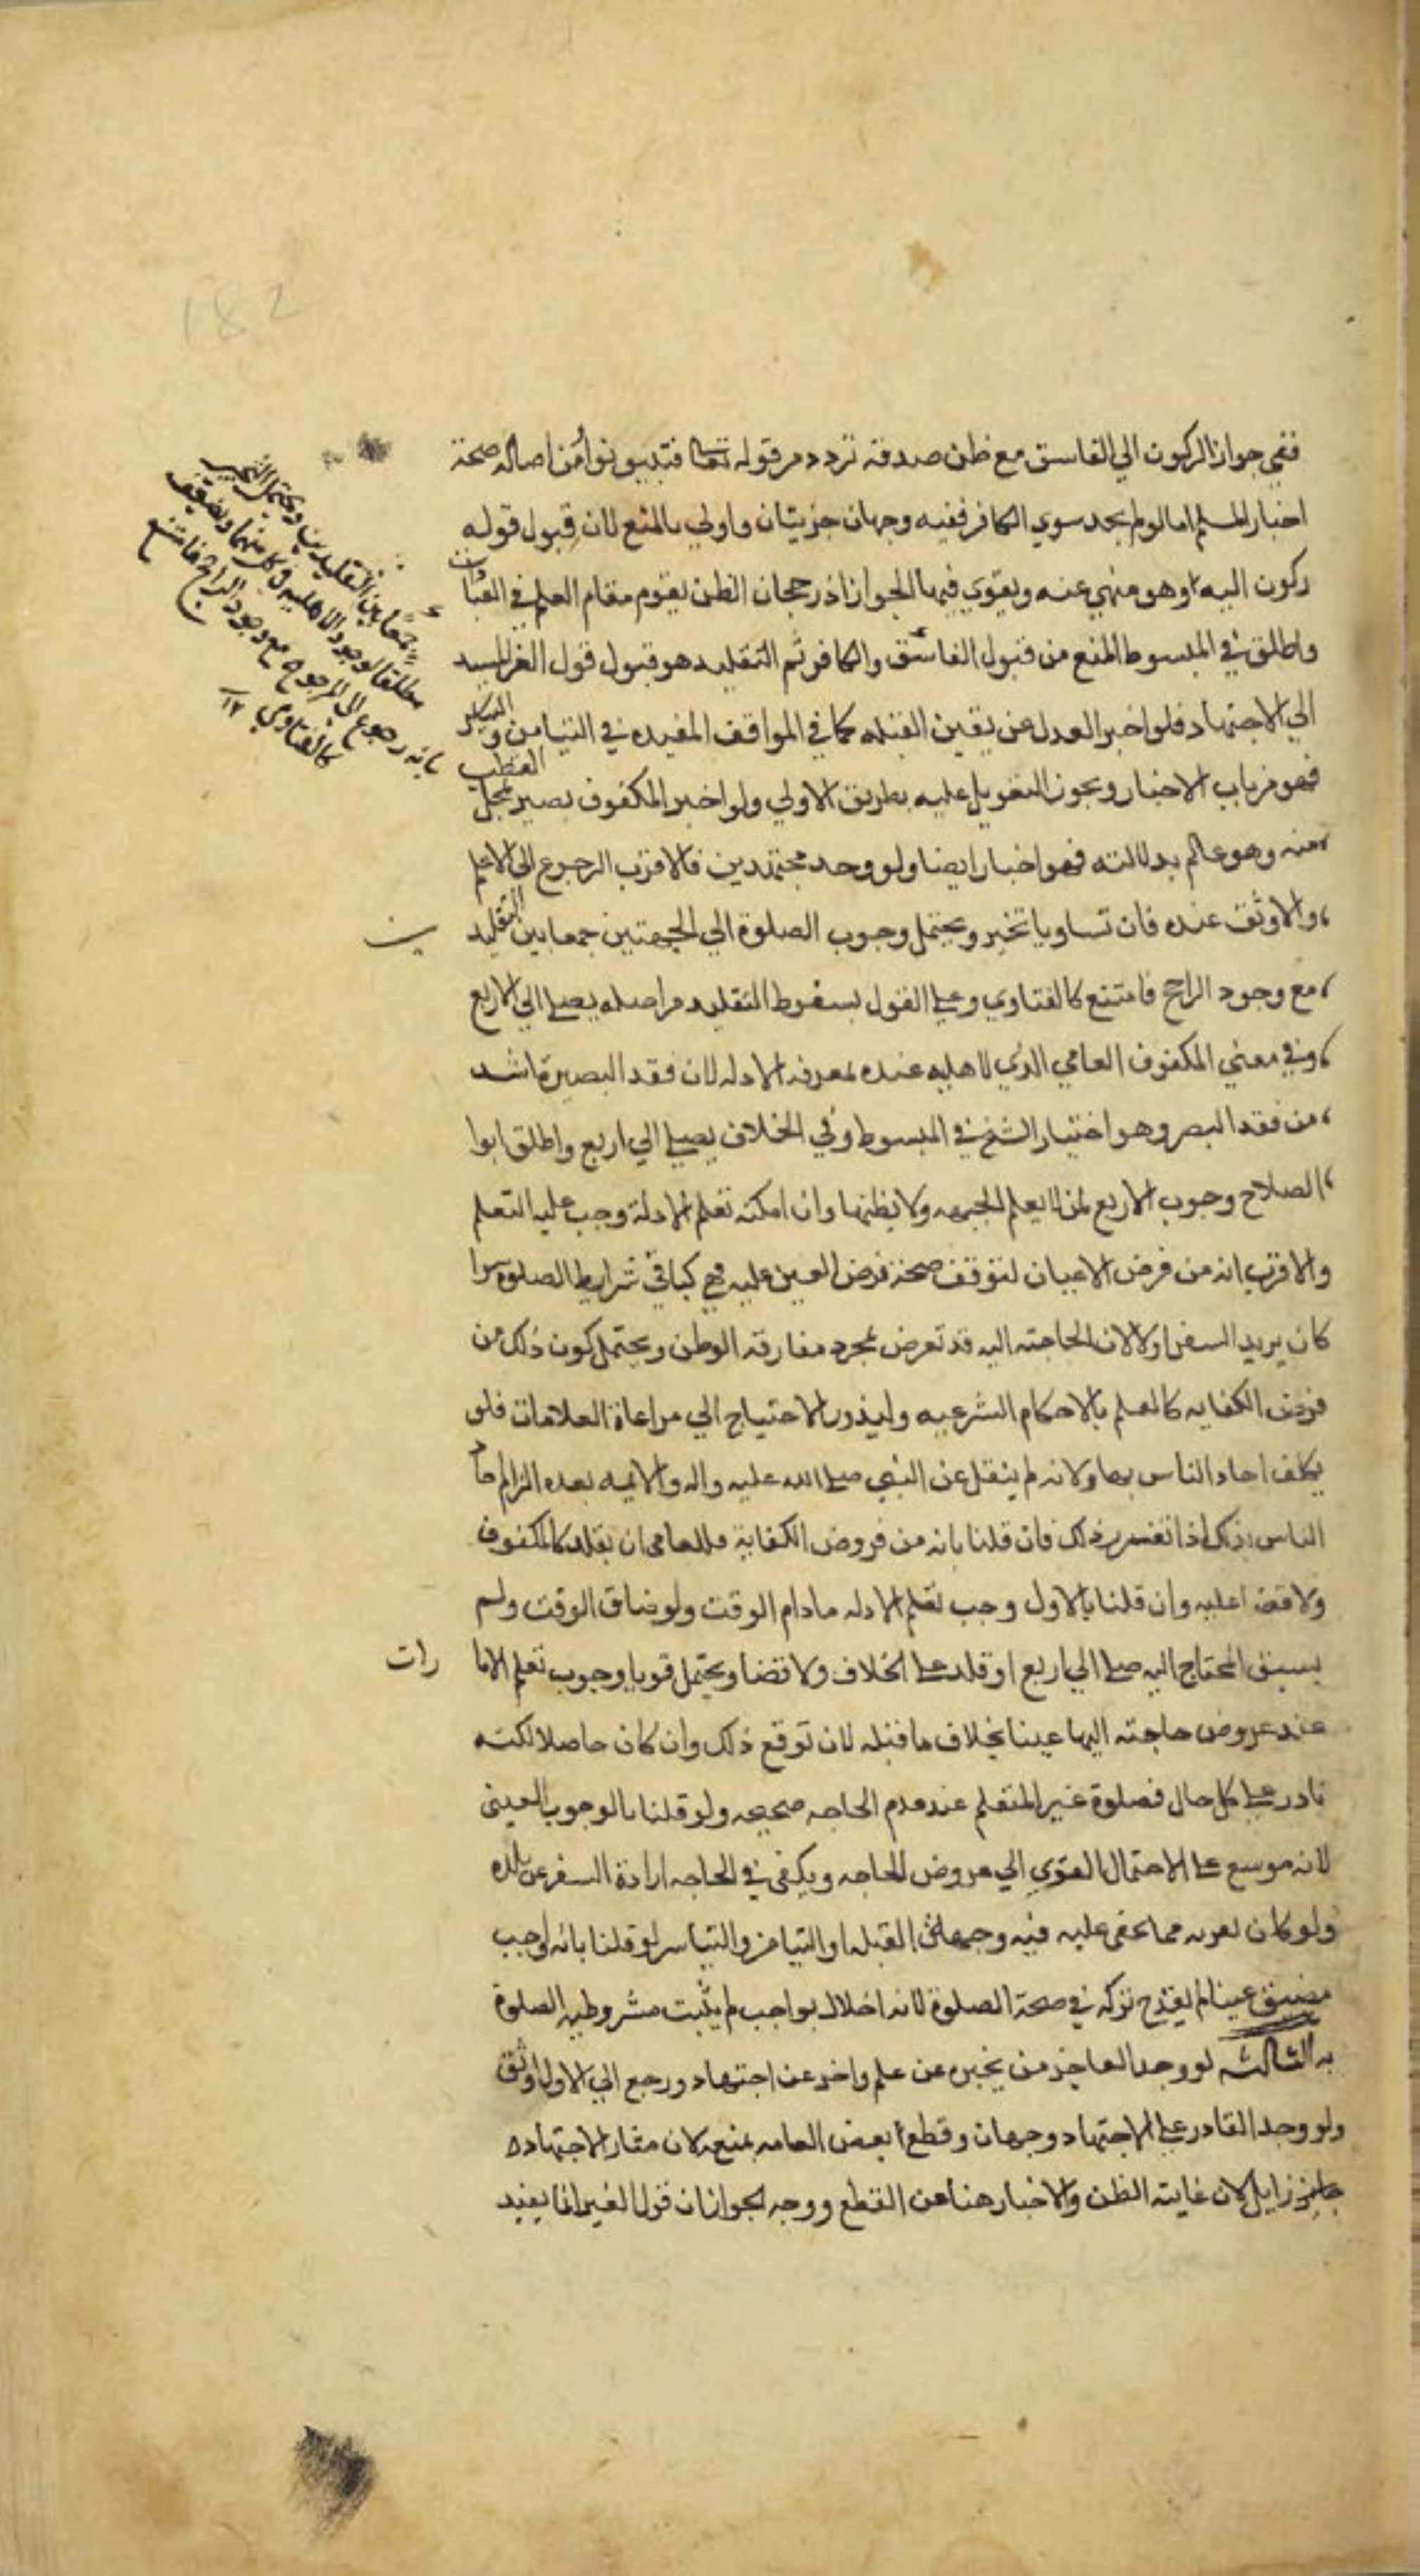 182
ففي جواز الركون الي الفاسق مع ظن صدقه تردد من قوله تعالى فتبينوا ومن اصاله صحة
اخبار المسلم اما لو لم يجد سوي الكافر ففيه وجهان مرتبان واولي بالمنع لان قبول قوله
ركون اليه وهو منهي عنه ويقوي فيهما الجواز اذ رجحان الظن يقوم مقام العلم في العبادات
واطلق في المبسوط المنع من قبول الفاسق والكافر ثم التقليد هو قبول قول الغير المستند
الي الاجتهاد فلو اخبر العدل عن يقين القبله كما في المواقف المفيده في التيامن والتياسر
فهو من باب الاخبار ويجوز التعويل عليه بطريق الاولي ولو اخبر المكفوف بصير بمحل القطب
منه وهو عالم بدلالته فهو اخبار ايضا ولو وجد مجتهدين فالاقرب الرجوع الى الاعلم
والاوثق عنده فان تساويا تخير ويحتمل وجوب الصلوة الي الجهتين جمعا بين التقليدين
مع وجود الراجح فامتنع كالفتاوي وعلي القول بسقوط التقليد من اصله يصلي الي الاربع
وفي معني المكفوف العامي الذي لا اهليه عنده لمعرفه الادله لان فقد البصيرة اشد
من فقد البصر وهو اختيار الشيخ في المبسوط وفي الخلاف يصلي الي اربع واطلق ابوا
الصلاح وجوب الاربع لمن لا يعلم الجهه ولا يظنها وان امكنه تعلم الادلة وجب عليه التعلم
والاقرب انه من فرض الاعيان لتوقف صحة فرض العين عليه فهي كباقي شرايط الصلوة سوا
كان يريد السفر او لا لان الحاجة اليه قد تعرض بمجرد مفارقة الوطن ويحتمل كون ذلك من
فرض الكفايه كالعلم بالاحكام الشرعيه ولندور الاحتياج الي مراعاة العلامات فلو
يكلف احاد الناس بها ولانه لم ينقل عن النبي صلى الله عليه واله والايمه بعده الزام احاد
الناس بذلك اذا تقرر ذلك فان قلنا بانه من فروض الكفاية فللعامي ان يقلد كالمكفوف
ولا قضا عليه وان قلنا بالاول وجب تعلم الادله ما دام الوقت ولو ضاق الوقت ولم
يسبق المحتاج اليه صلي الي اربع او قلد على الخلاف ولا قضا ويحتمل قويا وجوب تعلم الامارات
عند عروض حاجته اليها عينا بخلاف ما قبله لان توقع ذلك وان كان حاصلا لكنه
نادر على كل حال فصلوة غير المتعلم عند عدم الحاجه صحيحه ولو قلنا بالوجوب العيني
لانه موسع على الاحتمال القوي الي عروض الحاجه ويكفي في الحاجه ارادة السفر عن بلده
ولو كان بقربه مما يخفى عليه فيه وجهه القبله او التيامن والتياسر لو قلنا بانه واجب
مضيق عينا لم يقدح تركه في صحة الصلوة لانه اخلال بواجب لم يثبت مشروطيه الصلوة
به الثالثه لو وجد العاجز من يخبره عن علم واخر عن اجتهاد رجع الي الاول لاوثق
ولو وجد القادر على الاجتهاد وجهان وقطع بعض العامه بمنعه لان مثار الاجتهاد
جايز زايل لان غايته الظن والاخبار هنا عن القطع ووجه الجواز ان قول الغير انما يفيد
جمعا بين التقليدين ويحتمل التخيير
مطلقا لوجود الاهليه في كل منهما ويضعف
بانه رجوع الى المرجوح مع وجود الراجح فامتنع
كالفتاوي ١٢